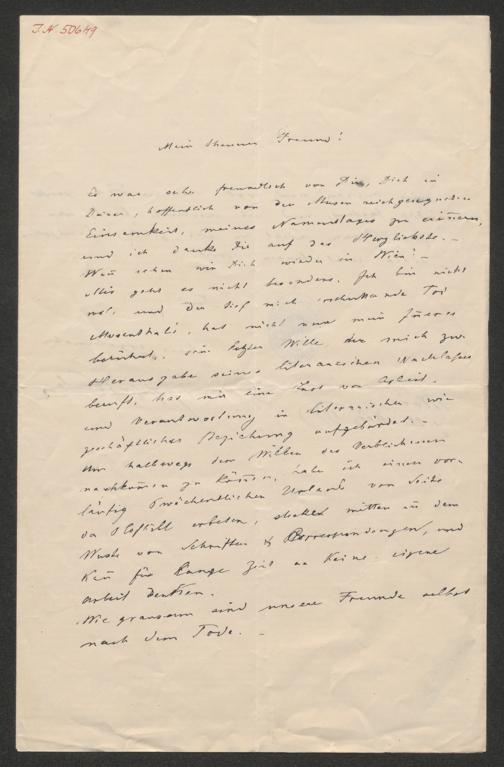 I.N. 50649
Mein theurer Freund!
Es war sehr freundlich von Dir, Dich in
Deiner, hoffentlich von den Musen reichgesegneten
Einsamkeit, meines Namenstages zu erinern,
und ich danke Dir auf das Herzlichste. –
Wañ sehen wir Dich wieder in Wien? –
Mir geht es nicht besonders. Ich bin nicht
wol, und der tief mich erschütternde Tod
Mosenthal's, hat nicht nur mein Iñeres
berührt, sein letzter Wille, der mich zur
Herausgabe seines literarischen Nachlasses
beruft, hat mir eine Last von Arbeit
und Verantwortung in literarischer wie
geschäftlicher Beziehung aufgebürdet. –
Um halbwegs dem Willen des Verblichenen
nachkomen zu köñen, habe ich einen vor-
läufig wöchentlichen Urlaub von Seite
der erbeten, stecke mitten in dem
Wuste von Schriften & Correspondenzen, und
kañ für lange Zeit an keine eigene
Arbeit denken.
Wie grausam sind unsere Freunde selbst
nach dem Tode. –